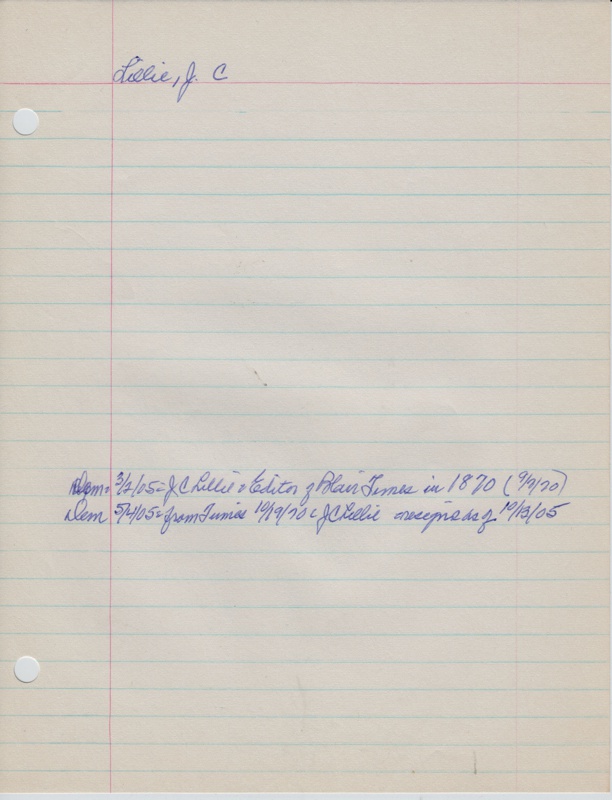 Lillie, J. C
Dem = 3/2/05 = J C Lillie = Editor of Blair Times in 1870 (9/7/70)
Dem 5/4/05 = from Times 10/19/70 = J C Lillie resigns as of 10/13/05